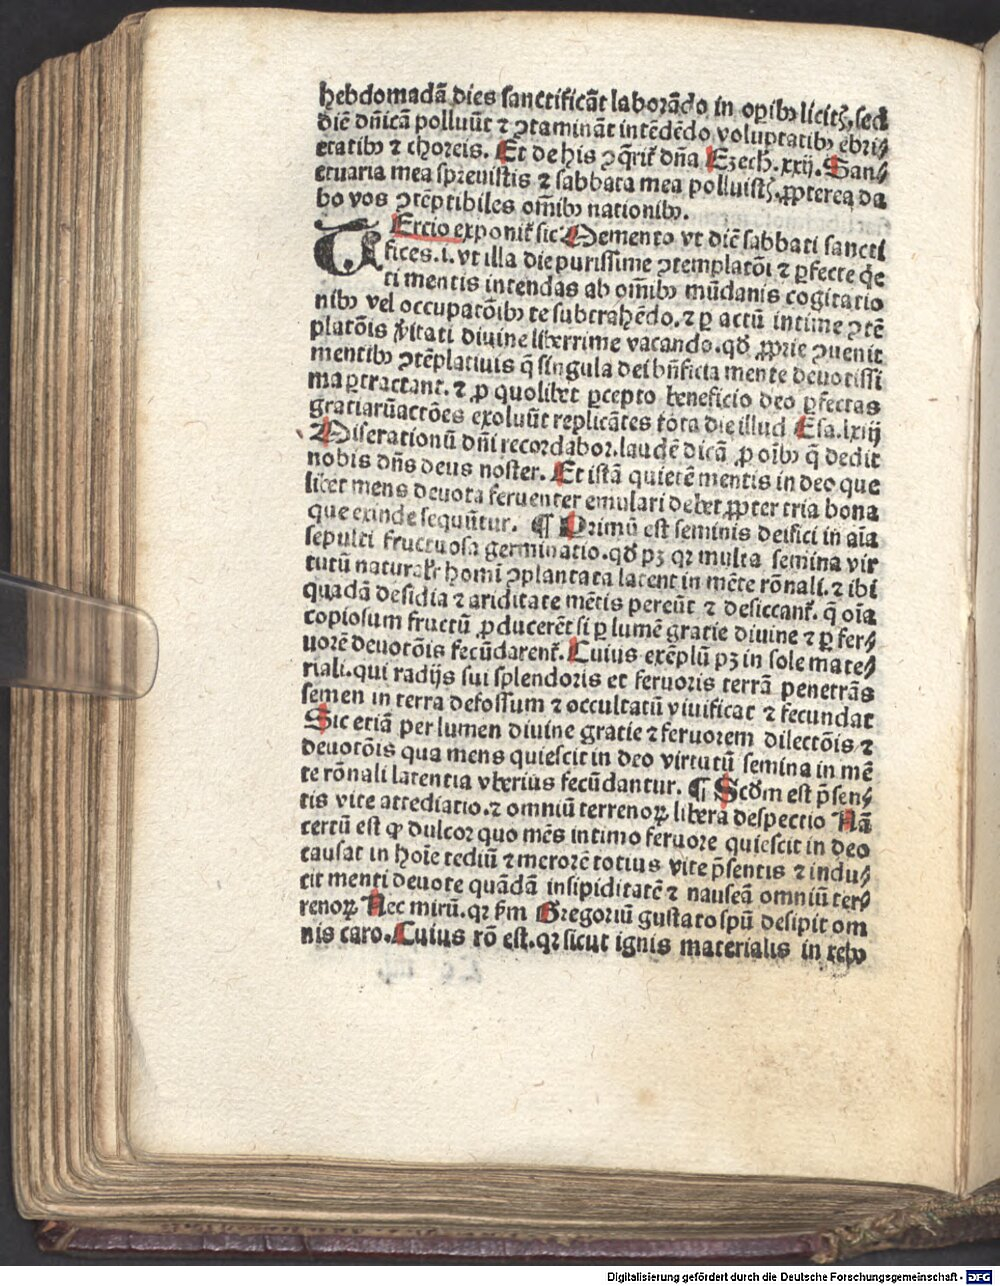 hebdomadã dies sanctificãt laborãdo in oꝑibꝰ licitꝭ. sed
diē dñicã polluūt ⁊ ꝯtaminãt intēdēdo voluptatibꝰ ebri⸗
etatibꝰ ⁊ choreis. Et de his ꝯq̄rit᷑ dñs Ezech. xxij. San⸗
ctuaria mea spreuistis ⁊ sabbata mea polluistꝭ. ꝓpterea da
bo vos ꝯtēptibiles om̄ibꝰ nationibꝰ.
TErcio exponit᷑ sic Memento vt diē sabbati sancti
fices. i. vt illa die purissime ꝯtemplatōi ⁊ ꝑfecte q̇e
ti mentis intendas ab om̄ibꝰ mūdanis cogitatio
nibꝰ vel occupatōibꝰ te subtrahēdo. ⁊ ꝑ actū intime ꝯtē
platōis v̓itati diuine liberrime vacando. qđ ꝓprie ꝯuenit
mentibꝰ ꝯtēplatiuis q̄ singula dei bn̄ficia mente deuotissi
ma ꝑtractant. ⁊ ꝓ quolibet ꝑcepto beneficio deo ꝑfectas
gratiarūactōes exoluūt replicãtes tota die illud Esa. lxiij
Miserationū dn̄i recordabor. laudē dicã ꝓ oībꝰ q̄ dedit
nobis dn̄s deus noster. Et istã quietē mentis in deo que
libet mens deuota feruenter emulari debet ꝓpter tria bona
que exinde sequūtur. ¶ Primū est seminis deifici in aīa
sepulti fructuosa germinatio. qđ pꝫ qꝛ multa semina vir
tutū naturalr̓ homī ꝯplantata latent in mēte rōnali. ⁊ ibi
quadã desidia ⁊ ariditate mētis pereūt ⁊ desiccant᷑. q̄ oīa
copiosum fructū ꝓducerēt si ꝑ lumē gratie diuine ⁊ ꝑ fer⸗
uorē deuotōis fecūdarent᷑. Cuius exēplū pꝫ in sole mate⸗
riali. qui radijs sui splendoris et feruoris terrã penetrãs
semen in terra defossum ⁊ occultatū viuificat ⁊ fecundat
Sic etiã per lumen diuine gratie ⁊ feruorem dilectōis ⁊
deuotōis qua mens quiescit in deo virtutū semina in mē
te rōnali latentia vberius fecūdantur. ¶ Scđm est p̄sen⸗
tis vite attediatio. ⁊ omniū terrenoꝝ libera despectio Nã
certū est ꝙ dulcor quo mēs intimo feruore quiescit in deo
causat in hoīe tediū ⁊ merorē totius vite p̄sentis ⁊ indu⸗
cit menti deuote quãdã insipiditatē ⁊ nauseã omniū ter⸗
renoꝝ Nec mirū. qꝛ ẜm Gregoriū gustato spū desipit om
nis caro. Cuius rō est. qꝛ sicut ignis materialis in rebꝰ
Digitalisierung gefördert durch die Deutsche Forschungsgemeinschaft - DFG